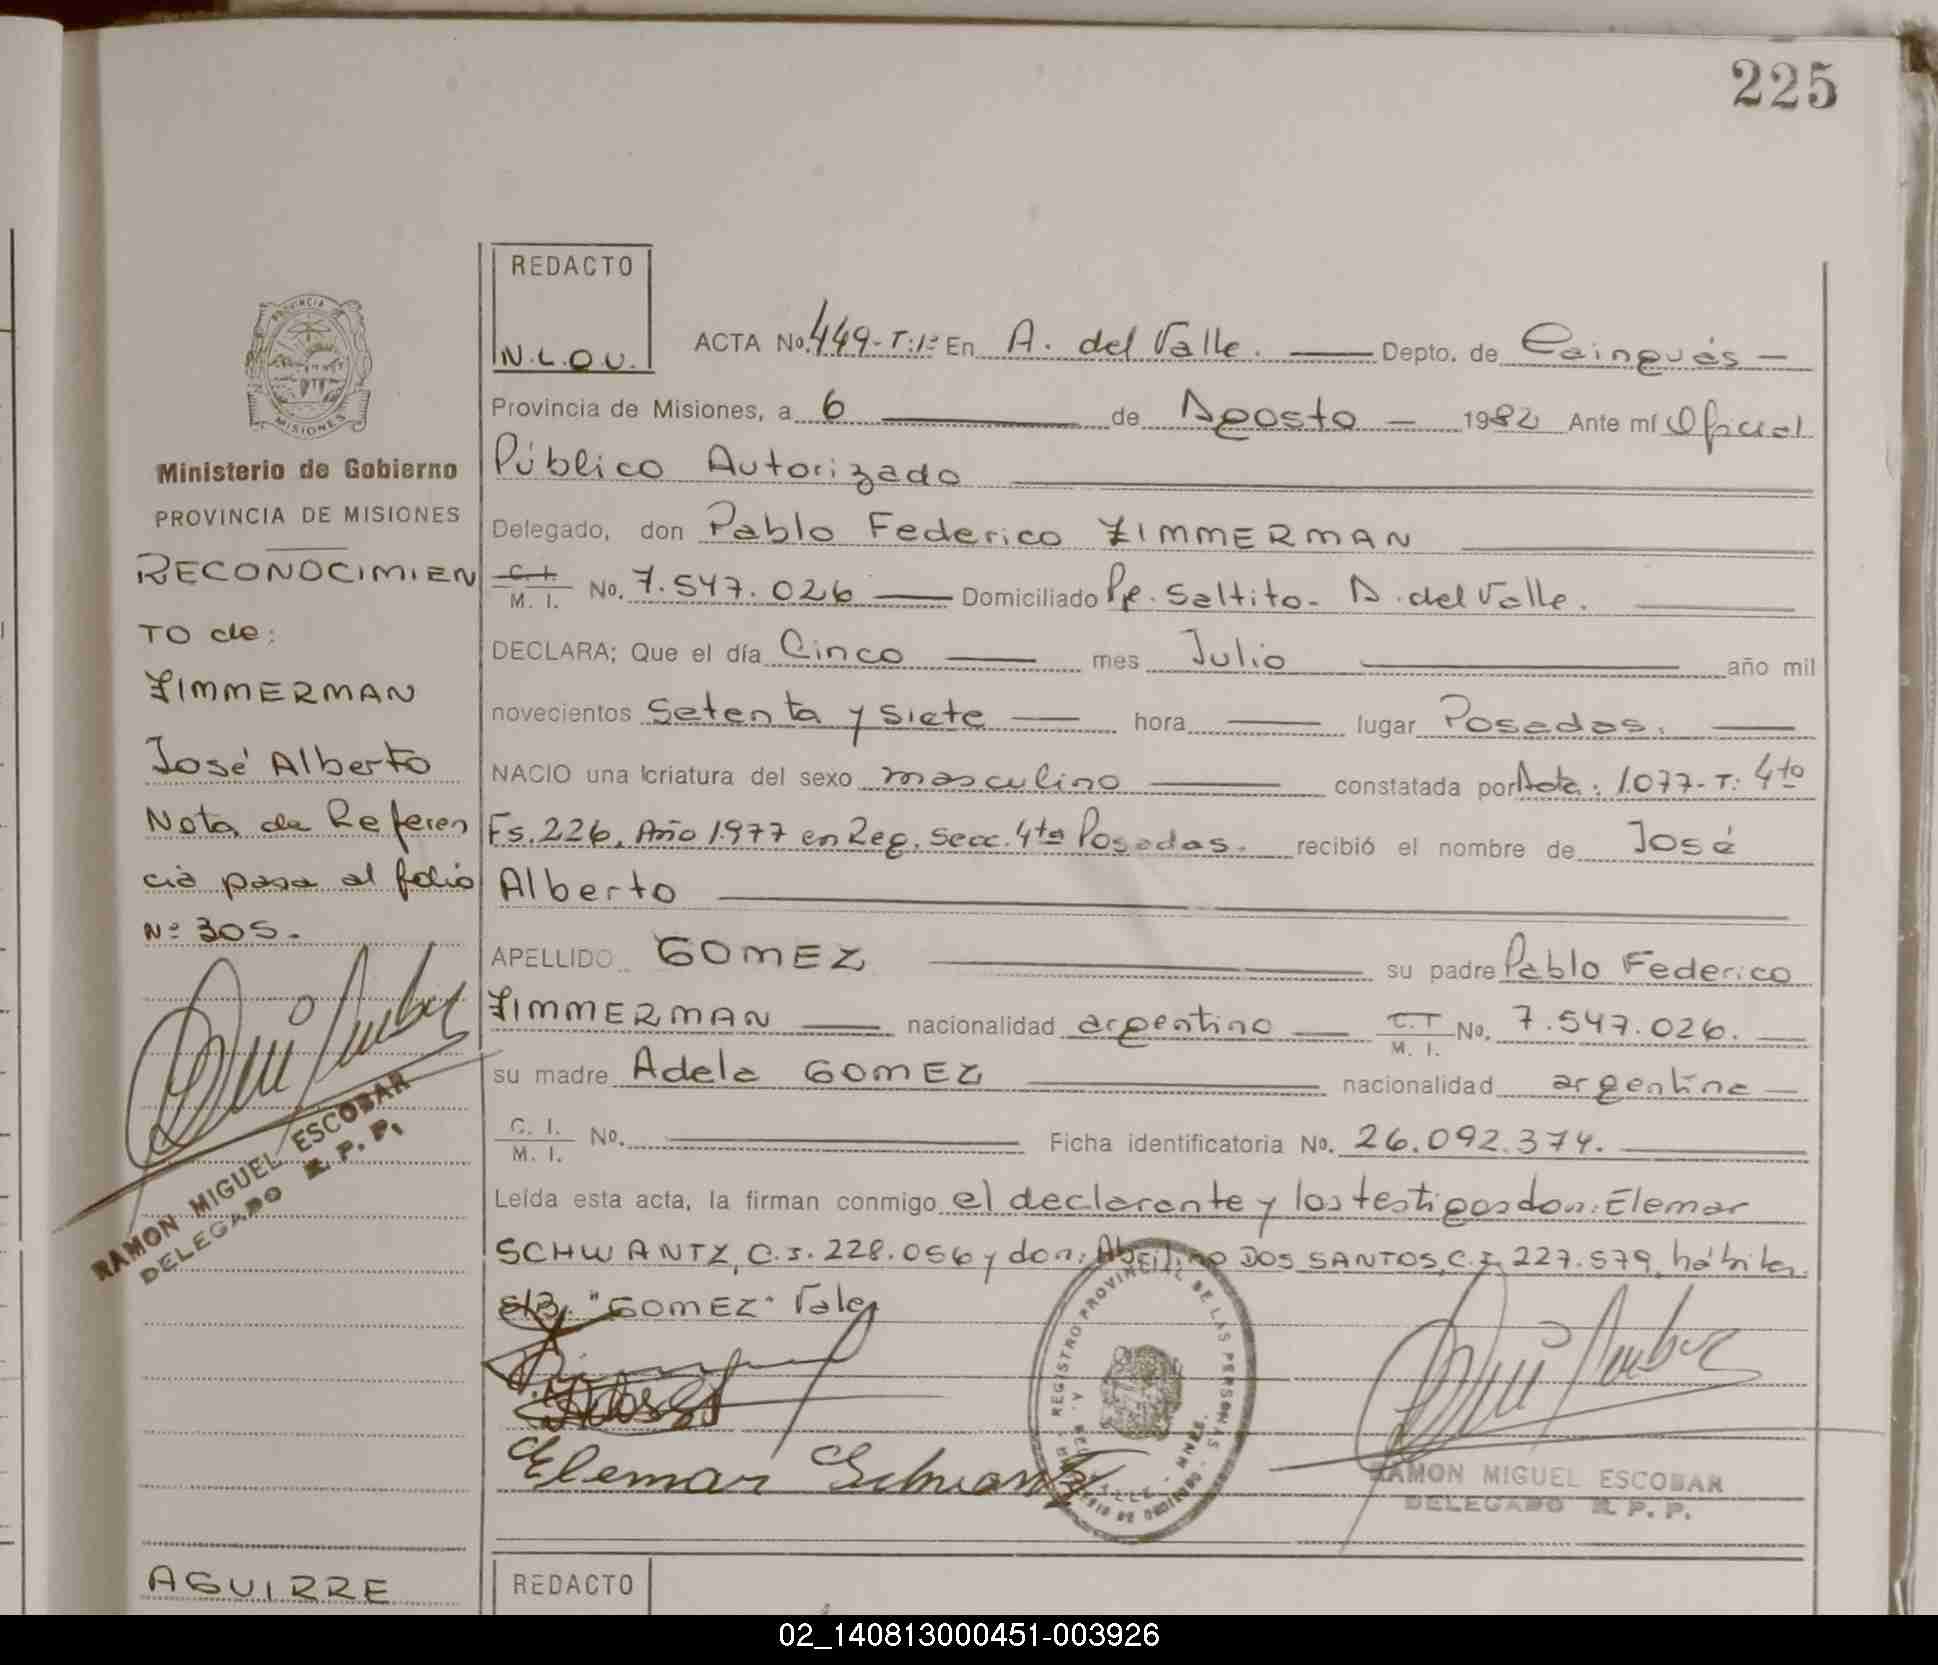 225
REDACTO
N.L.O.V.
ACTA No. 449-T:1º En A. del Valle. Depto. de Cainguás
Provincia de Misiones, a 6 de Agosto 1982 Ante mí Oficial
Público Autorizado
Delegado, don Pablo Federico ZIMMERMAN
C. I. M. I. No. 7.547.026 Domiciliado Pje. Saltito- A. del Valle.
DECLARA; Que el día Cinco mes Julio año mil
novecientos setenta y siete hora lugar Posadas.
NACIO una criatura del sexo masculino constatada por Acta: 1.077-T: 4to
Fs. 226, Año 1.977 en Reg. Secc. 4ta Posadas. recibió el nombre de José
Alberto
APELLIDO GOMEZ su padre Pablo Federico
ZIMMERMAN nacionalidad argentino C.I. M. I. No. 7.547.026.
su madre Adela GOMEZ nacionalidad argentina
C. I. M. I. No. Ficha identificatoria No. 26.092.374.
Leída esta acta, la firman conmigo el declarante y los testigos don: Elemar
SCHWANTZ, C.I. 228.056 y don: Abelino DOS SANTOS, C.I. 227.579, hábiles.
S/B. "GOMEZ" Vale
Elemar Schwantz
REGISTRO PROVINCIAL DE LAS PERSONAS
RAMON MIGUEL ESCOBAR
DELEGADO R. P. P.
PROVINCIA
MISIONES
Ministerio de Gobierno
PROVINCIA DE MISIONES
RECONOCIMIEN
TO de:
ZIMMERMAN
José Alberto
Nota de Referen
cia pasa al folio
Nº 305.
RAMON MIGUEL ESCOBAR
DELEGADO R. P. P.
AGUIRRE
REDACTO
02_140813000451-003926